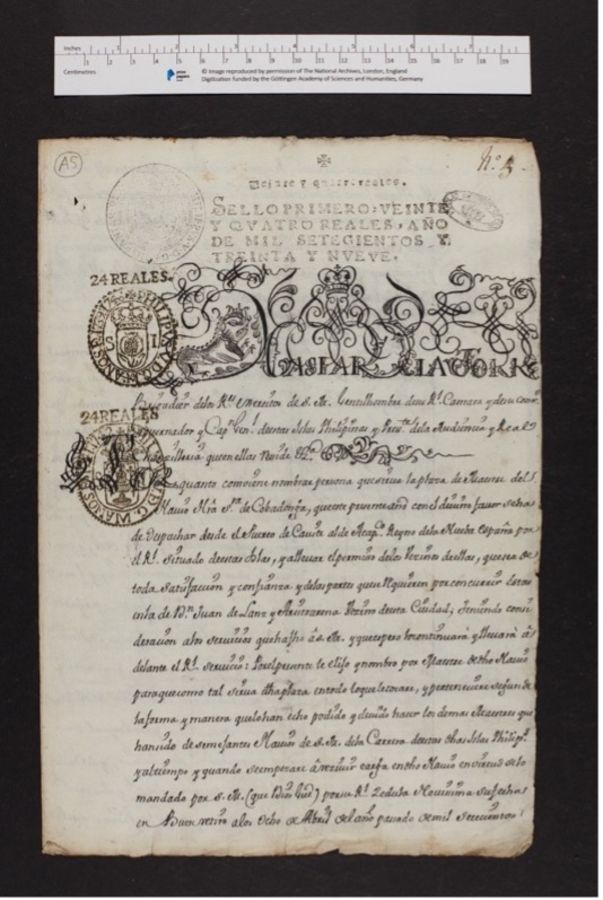 Inches 1 2 3 4 5 6 7
Centimetres 1 2 3 4 5 6 7 8 9 10 11 12 13 14 15 16 17 18 19
© Image reproduced by permission of The National Archives, London, England
Digitization funded by the Göttingen Academy of Sciences and Humanities, Germany
A5
N.º 5.
Veinte y quatro reales.
SELLO PRIMERO, VEINTE
Y QVATRO REALES, AÑO
DE MIL SETECIENTOS Y
TREINTA Y NVEVE.
24 REALES.
D. GASPAR DE LA TORRE
Brigadier delos R.s Exercitos de S. M. Gentilhombre desu R.l Camara y desu
Governador y Cap.n Gen.l destas Islas Philipinas y Pres.te dela Audiencia y Real
Chancilleria que en ellas reside
24 REALES
Por quanto combiene nombrar persona que sirva la plaza de Maestre del
Navio Ntra S.ra de Cobadonga, que este presente año con el divino favor seha
de despachar desde el Puerto de Cavite al de Acap.co Reyno dela Nueba España por
el R.l situado destas Islas, y allevar el permiso delos Vezinos de ellas, que sea de
toda satisfaccion y confianza y delas partes que se requieren por concurrir estas
en la de D.n Juan de Lanz y Vezino desta Ciudad; teniendo consi
deracion alos servicios que ha fho â S. M. y que espero lo continuará y llevará â
delante el R.l servicio: Por el presente le elijo y nombro por Maestre de dho Navio
para que como tal sirva dha plaza en todo lo que le tocare, y perteneciere segun de
la forma y manera que lo han echo podido y devido hacer los demas Maestres que
han sido de semejantes Navios de S. M. dela Carrera destas dhas Islas Philip.s
y al tiempo y quando se empezare â recivir carga en dho Navio en virtud de lo
mandado por S. M. (que Dios Gue) por su R.l Zedula Novissima su fecha
en Buen retiro a los Ocho de Abril del año pasado de mil setecientos